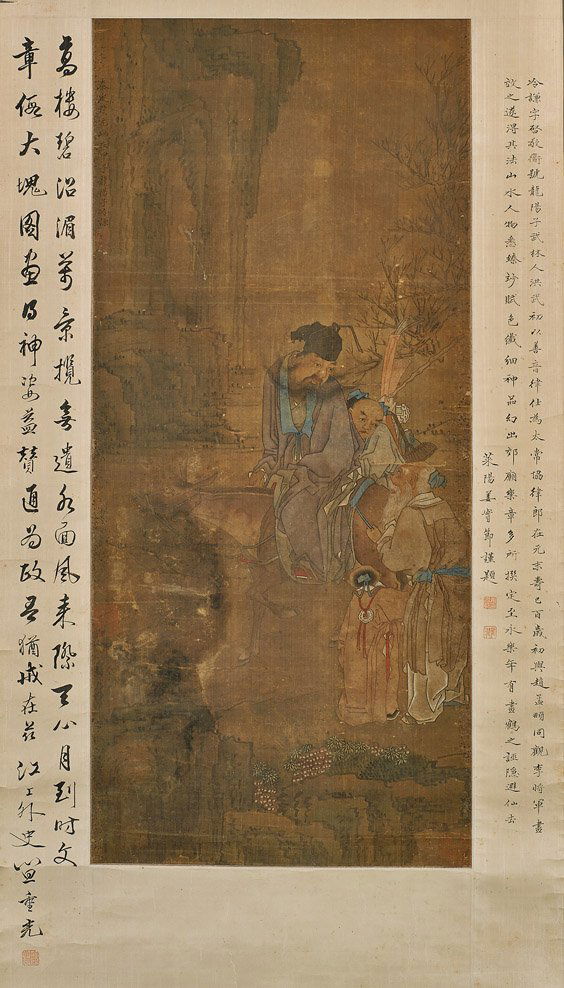 冷謙字啓敬衟號龍陽子武林人洪武初以善音律仕為太常協律郎在元末壽已百歲初與趙孟頫同觀李將軍畫
效之遂得其法山水人物悉臻妙賦色纖細神品幻出郊廟樂章多所撰定至永樂年有畫鶴之誣隱避仙去
萊陽姜實節謹題
高樓碧沼湄萬景攬無遺水面風來際天心月到時文
章假大塊圖畫得神姿益贊通為政吾猶戒在茲 江上外史笪重光